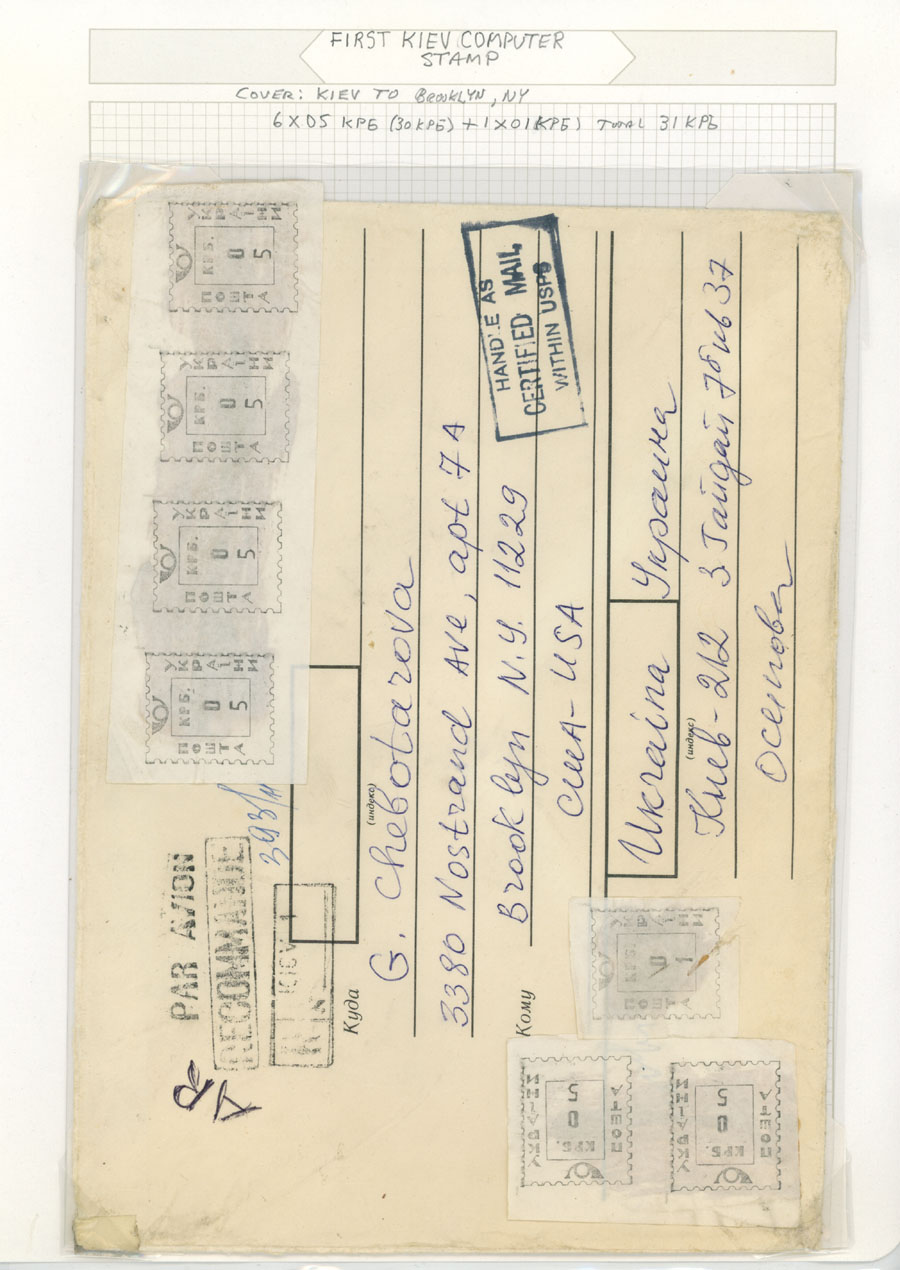 FIRST KIEV COMPUTER
STAMP
COVER: KIEV TO BROOKLYN, NY
6 X 05 КРБ (30 КРБ) + 1 X 01 КРБ) TOTAL 31 КРБ
УКРАЇНИ
КРБ.
0
5
ПОШТА
УКРАЇНИ
КРБ.
0
5
ПОШТА
УКРАЇНИ
КРБ.
0
5
ПОШТА
УКРАЇНИ
КРБ.
0
5
ПОШТА
HANDLE AS
CERTIFIED MAIL
WITHIN USPS
PAR AVION
RECOMMANDE
AR
393/
KIEV 1
Куда
(индекс)
G. Chebotarova
3380 Nostrand Ave, apt 7A
Brooklyn N.Y. 11229
Кому
США-USA
Ukraina Украина
(индекс)
Киев-212 3 Гайдай 7 37
Осипова
УКРАЇНИ
КРБ.
0
1
ПОШТА
УКРАЇНИ
КРБ.
0
5
ПОШТА
УКРАЇНИ
КРБ.
0
5
ПОШТА